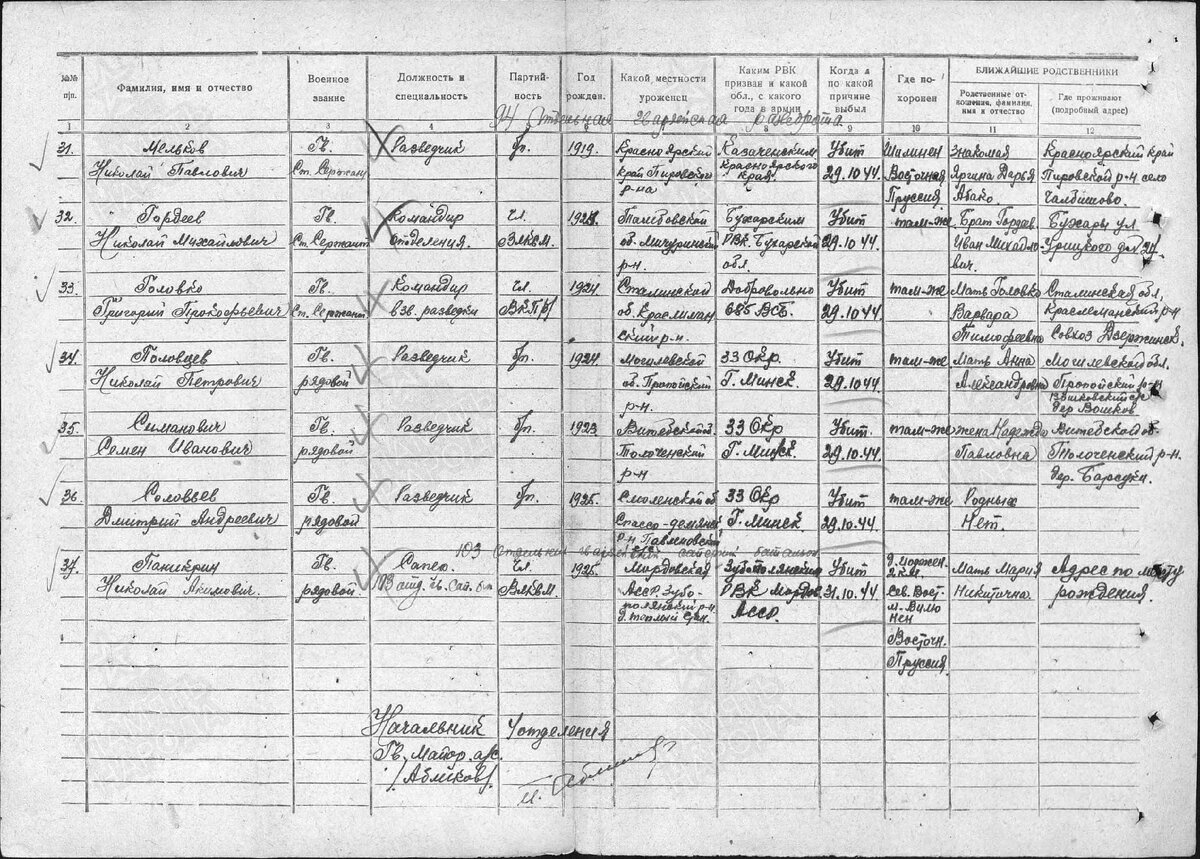 №№ п/п.
Фамилия, имя и отчество
Военное звание
Должность и специальность
Партийность
Год рожден.
Какой местности уроженец
Каким РВК призван и какой обл., с какого года в армии
Когда и по какой причине выбыл
Где похоронен
БЛИЖАЙШИЕ РОДСТВЕННИКИ
Родственные отношение, фамилия, имя и отчество
Где проживают (подробный адрес)
1 2 3 4 8 9 10 11 12
94 Отдельная гвардейская разведрота
31. Мельков Гв. Разведчик бп. 1919. Красноярский Казаченским Убит Шалинен Знакомая Красноярский край
Николай Павлович Ст. Сержан край Пировского Красноярского 29.10 44. Восточная Яргина Дарья Пировской р-н село
р-на края. Пруссия
32. Гордеев Гв. Командир чл. Тамбовской Бухарским Убит там-же Брат Гордеев Бухары ул.
Николай Михайлович Ст. Сержант отделения. Влквм. об. Мичуринский РВК Бухарской 29.10.44. Иван Михайло- Урицкого д№ 24.
р-н. обл. вич.
33. Головко Гв. Командир чл. 1924. Сталинской Добровольно Убит там-же Мать Головко Сталинская обл.
Григорий Прокофьевич Ст. Сержант взв. разведки ВКП/б/ об. 685 ВСБ. 29.10.44 Варвара
ский р-н. Тимофеевна Совхоз Дзержинск.
34. Половцев Гв. Разведчик бп. 1924. Могилевской 33 Окр. Убит там-же Мать Анна Могилевской обл.
Николай Петрович рядовой об. Пропойский Г. Минск. 29.10.44. Александровна Пропойский р-н
р-н.
35. Симанович Гв. Разведчик бп. 1923. Витебской об 33 Окр Убит. там-же жена Надежда Витебской об.
Семен Иванович рядовой Толоченский Г. Минск. 29.10.44. Павловна Толоченский р-н.
р-н
36. Соловьев Гв Разведчик бп. 1925. Смоленской об 33 Окр Убит там-же Родных
Дмитрий Андреевич рядовой Спассо-демянск Г. Минск 29.10.44. Нет.
103 Отдельный гвардейский саперный батальон.
37. Гв. Сапер. чл. 1925. Мордовская Зубополянским Убит Мать Мария Адрес по месту
Николай Акимович. рядовой. 103 отд. гв. сап. б-н Влквм. Асср. Зубо- РВК Мордов. 31.10.44. Сев. Вост. Никитична рождения.
полянский р-н Асср.
д. Теплый Стан.
Восточн.
Пруссия.
Начальник 4 отделения
Гв. Майор а/с.
/Абликов/